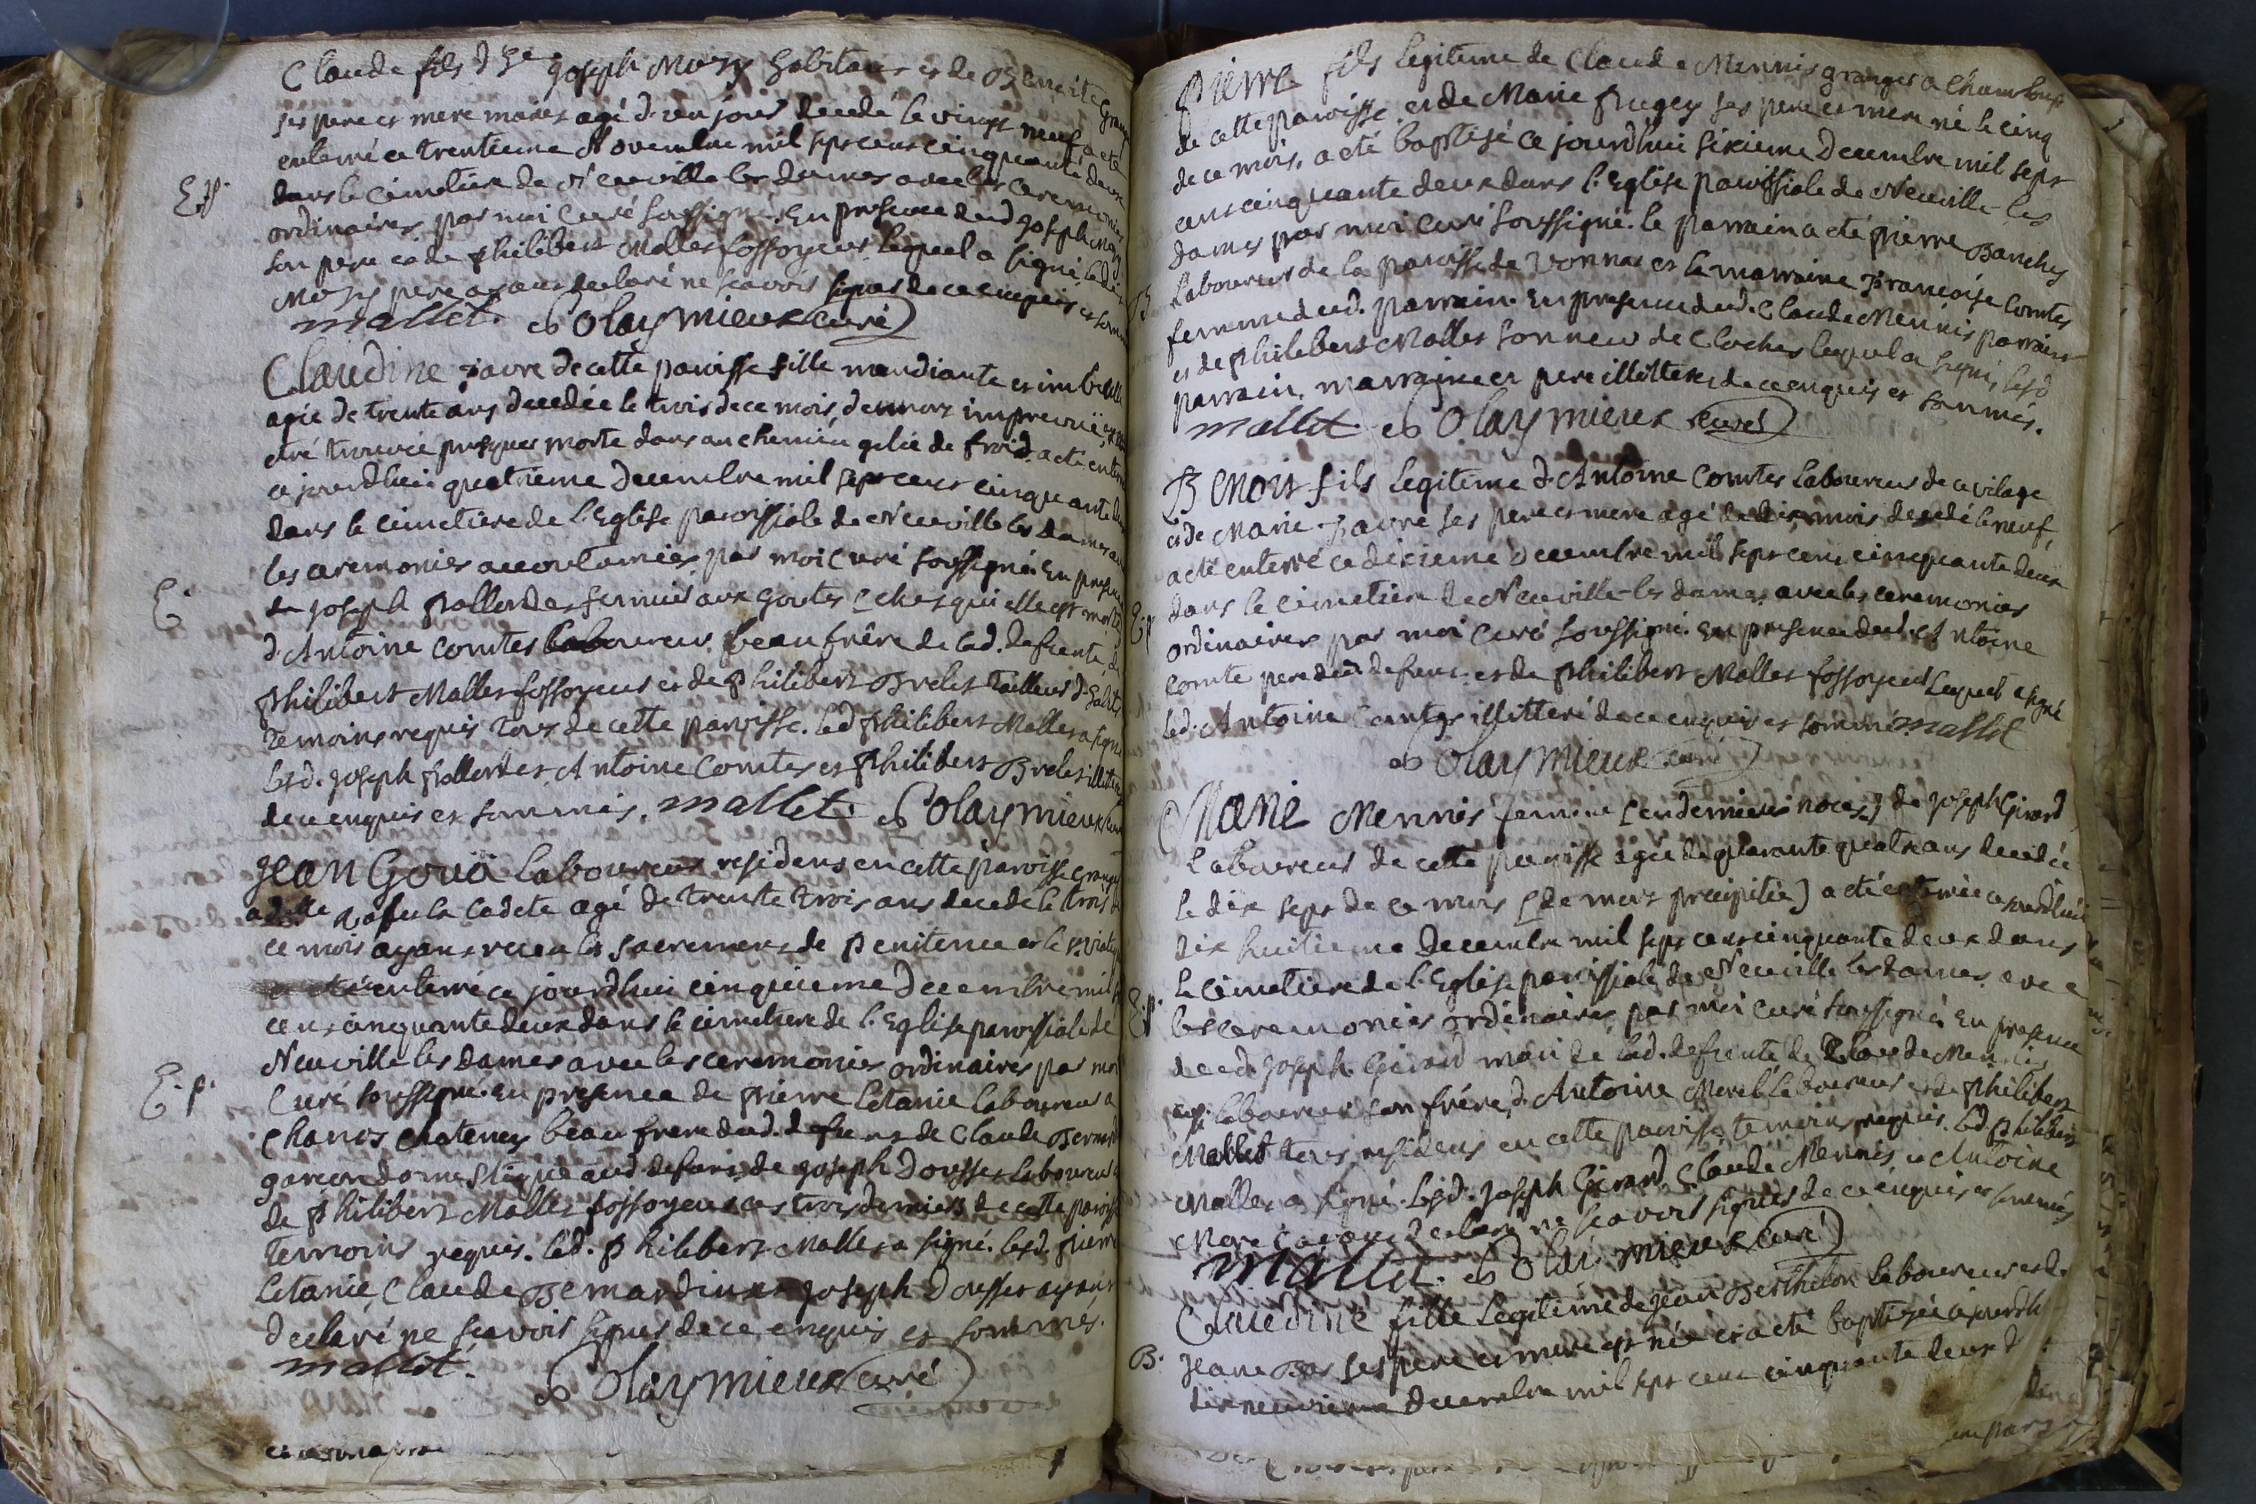 Claude fils d'h^e Joseph Mozy habitant et de Benoite Grange
ses pere et mere mariés agé d'un jour decedé le vingt neuf a eté
enterré ce trentieme Novembre mil sept cent cinquante deux
dans le cimetiere de Neuville les dames avec les ceremonies
ordinaires par moi curé soussigné. En presence dud. Joseph Mozy
son pere et de Philibert Mallet fossoyeur lequel a signé, led.
Mozy pere ayant declaré ne scavoir signer de ce enquis et sommé
mallet. Olaymieux curé
E.p.
Claudine favre de cette paroisse fille mendiante et imbecille
agée de trente ans decedée le trois de ce mois, de mort imprevuë,
etré trouvée presque morte dans un chemin gelée de froid, a eté enterrée
ce jourdhui quatrieme decembre mil sept cent cinquante deux
dans le cimetiere de l'Eglise paroissiale de Neuville les dames avec
les ceremonies accoutumées par moi curé soussigné. En presence
de Joseph fermier aux Goutes chez qui elle est morte
d'Antoine Comtes laboureur beau frere de lad. defunte, de
Philibert Mallet fossoyeur et de Philibert Brelet tailleur d'habits
temoins requis tous de cette paroisse. led Philibert Mallet a signé
lesd. Joseph Antoine Comtes et Philibert Brelet illiterés
de ce enquis et sommés. mallet. Olaymieux curé
E.
Jean Goüa laboureur residens en cette paroisse granger
la Cadete agé de trente trois ans decedé le trois de
ce mois ayant receu les sacremens de Penitence et le s. viatique
a eté enterré ce jourdhui cinquieme Decembre mil sept
cent cinquante deux dans le cimetiere de l'Eglise paroissiale de
Neuville les dames avec les ceremonies ordinaires par moi
Curé soussigné. En presence de Pierre Letanie laboureur a
Chanos Chatenay beau frere dud. defunt de Claude Bernardin
garçon domestique aud defunt, de Joseph Dousset laboureur et
de Philibert Mallet fossoyeur ces trois derniers de cette paroisse
temoins requis. led. Philibert Mallet a signé. lesd. Pierre
Letanie, Claude Bernardin et Joseph Dousset ayant
declaré ne scavoir signer de ce enquis et sommés.
mallet. Olaymieux curé
E.p.
Pierre fils legitime de Claude Mennis granger a
de cette paroisse et de Marie frugey ses pere et mere né le cinq
de ce mois, a eté baptisé ce jourdhui sixieme Decembre mil sept
cent cinquante deux dans l'Eglise paroissiale de Neuville-les
dames par moi curé soussigné. le parrain a eté Pierre Banchy
laboureur de la paroisse de Vonnas et la marraine Françoise Comtes
femme dud. parrain. En presence dud. Claude Mennis parrain
et de Philibert Mallet sonneur de Cloches lequel a signé, lesd
parrain, marraine et pere illitteres de ce enquis et sommés.
mallet. Olaymieux curé
B
Benoit fils legitime d'Antoine Comtes laboureur de ce vilage
et de Marie favre ses pere et mere agé de dix mois decedé le neuf,
a eté enterré ce dixieme Decembre mil sept cent cinquante deux
dans le cimetiere de Neuville-les dames avec les ceremonies
ordinaires par moi Curé soussigné. En presence dud. Antoine
Comte pere dud defunt et de Philibert Mallet fossoyeur Lequel a signé
led. Antoine Comtes illitteré de ce enquis et sommé mallet
Olaymieux curé
E.p.
Marie Mennis femme [en dernieres noces] de Joseph Girard
Laboureur de cette paroisse agée de quarante quatre ans decedée
le dix sept de ce mois [de mort precipitée] a eté enterrée ce jourdhui
dix huitieme Decembre mil sept cent cinquante deux dans
le cimetiere de l'Eglise paroissiale de Neuville les dames avec
les ceremonies ordinaires par moi curé soussigné En presence
dud. Joseph Girard mari de lad. defunte de Claude Mennis
laboureur son frere, d'Antoine Morel laboureur et de Philibert
Mallet tous residens en cette paroisse temoins requis. led. Philibert
Mallet a signé. lesd. Joseph Girard, Claude Mennis et Antoine
Morel ayant declaré ne scavoir signer de ce enquis et sommés
mallet. Olaymieux curé
E.p.
Claudine fille legitime de Jean Berthelon laboureur et de
Jeane Bas ses pere et mere est née et a eté baptizée ce jourdh
dixneuvieme decembre mil sept cent cinquante deux d
B.